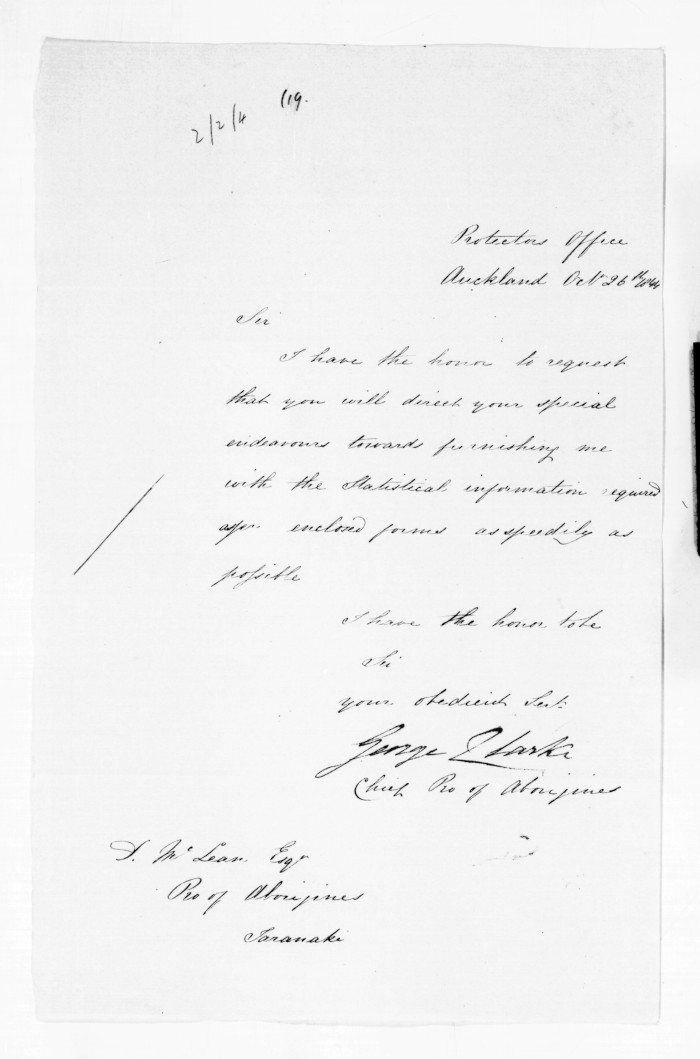 2/2/4 119.
Protectors Office
Auckland Octr 26th 1844
Sir
I have the honor to request
that you will direct your special
endeavours towards furnishing me
with the Statistical information required
as pr enclosed forms as speedily as
possible
I have the honor to be
Sir
your obedient Sert.
George Clarke
Chief Pro of Aborigines
D. Mc Lean Esqr
Pro of Aborigines
Taranaki